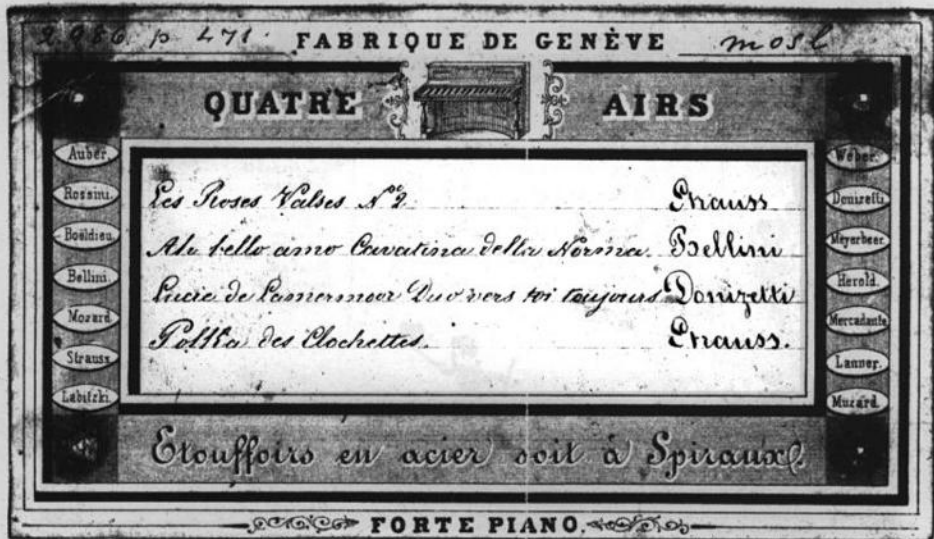 2986 p 471. mosl
FABRIQUE DE GENÈVE
QUATRE AIRS
Auber.
Rossini.
Boëldieu.
Bellini.
Mozard
Strauss
Labitzki.
Les Roses Valses Nº 2 Strauss
Ah bello amo Cavatina della Norma. Bellini
Lucie de Lamermoor Duo vers toi toujours Donizetti
Polka des Clochettes. Strauss.
Weber.
Donizetti
Meyerbeer.
Herold.
Mercadante
Lanner.
Muzard.
Etouffoirs en acier soit à Spiraux.
FORTE PIANO.